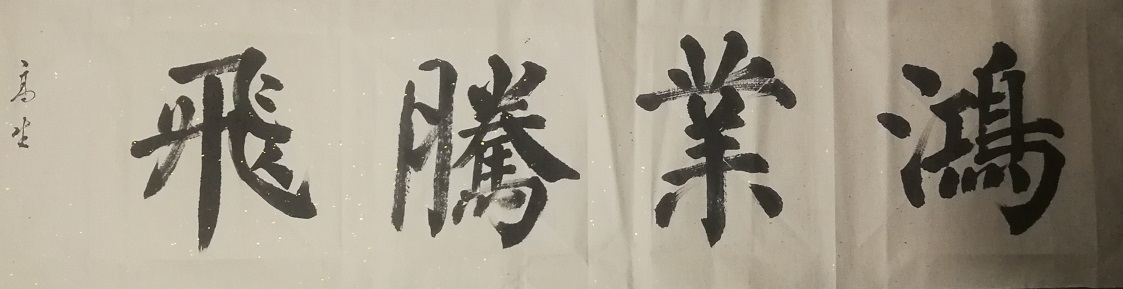 鴻業騰飛
高